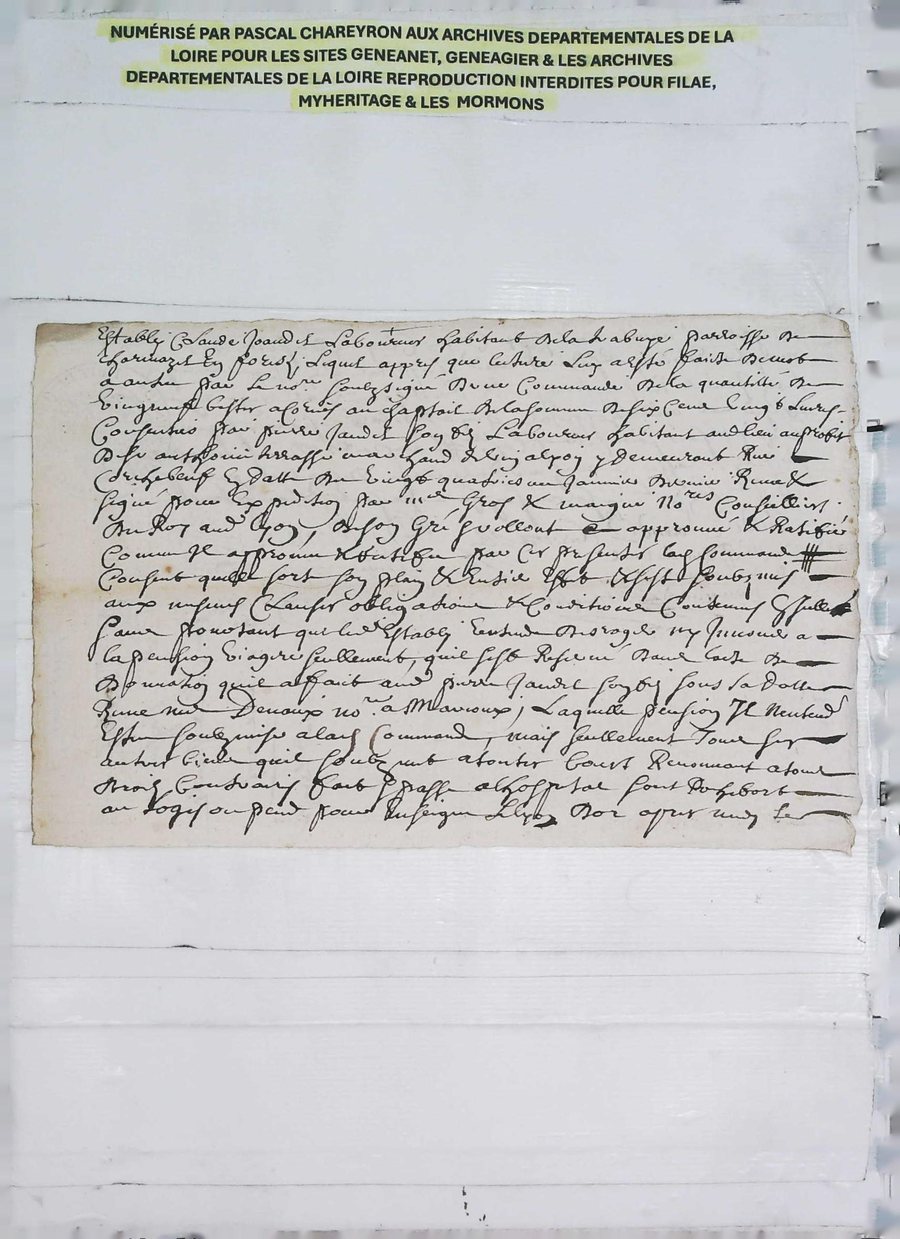 NUMÉRISÉ PAR PASCAL CHAREYRON AUX ARCHIVES DEPARTEMENTALES DE LA
LOIRE POUR LES SITES GENEANET, GENEAGIER & LES ARCHIVES
DEPARTEMENTALES DE LA LOIRE REPRODUCTION INTERDITES POUR FILAE,
MYHERITAGE & LES MORMONS
Estably Claude Jandet Laboureur habitant de parroisse de
en forestz, Lequel appres que lecture luy a esté faicte de mot
a autre par le no.re soubzsigné de une Commande de la quantité de
bestes a au chaptail de la somme de six cent vingt livres
par pierre Jandet son filz Laboureur habitant audit lieu au proffit
de sr anthoine marchand de lyon y demeurant Rue
en datte du vingt quatriesme Janvier dernier Receu &
signé pour expedition par me Gros & no.res Conseilliers
du Roy aud Lyon, de son Gré a approuvé & Ratifié
Comme Il approuve & ratiffie par ces presentes lad Commande
Consent quelle sorte son plain & Entier Effect & sest soubzmis
aux mesmes Clauses obligations & Conditions Contenues
sauf que led Estably de en Jnnove a
la pension viagere seullement, quil sest Reservé dans lacte de
donnation quil a fait aud pierre Jandet son filz sous sa datte
Receu me Devaux no.re a Marcoux, Laquelle pension Il Nentend
Estre soubzmise a lad Commande, mais seullement Tous ses
autres biens quil soubzmet a toutes Cours Renonceant a tous
droitz Contraires fait & passé a lhospital soubz Rochefort
au logis ou pend pour Enseigne Lyon dor apres midy le